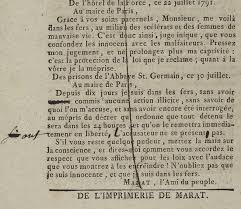 De l'hôtel de la Force, ce 22 juillet 1791.
Au maire de Paris,
Grâce à vos soins paternels, Monsieur, me voilà
dans les fers, au milieu des scélérats et des femmes de
mauvaise vie. C'est donc ainsi, juge inique, que vous
confondez les innocens avec les malfaiteurs. Pressez
mon jugement, et ne prolongez plus ma captivité :
c'est la protection de la loi que je réclame ; quant à la
vôtre je la méprise.
Des prisons de l'Abbaye St. Germain, ce 30 juillet.
Au maire de Paris,
Depuis dix jours je suis dans les fers, sans avoir
commis aucune action illicite, sans savoir de
quoi l'on m'accuse et sans avoir été interrogé, au
mépris du décret qui ordonne que tout détenu le
sera dans les 24 heures et qu'on le remettra
immédiatement en liberté, si l'accusateur ne se présente pas
Vous n'êtes pas le coupable, mettez la main sur
la conscience, et dites-moi comment vous accordez le
respect que vous affichez pour les loix avec l'audace
que vous montrez à les enfreindre ? N'oubliez pas que
je suis innocente, et que je suis dans les fers.
MARAT, l'Ami du peuple.
DE L'IMPRIMERIE DE MARAT.